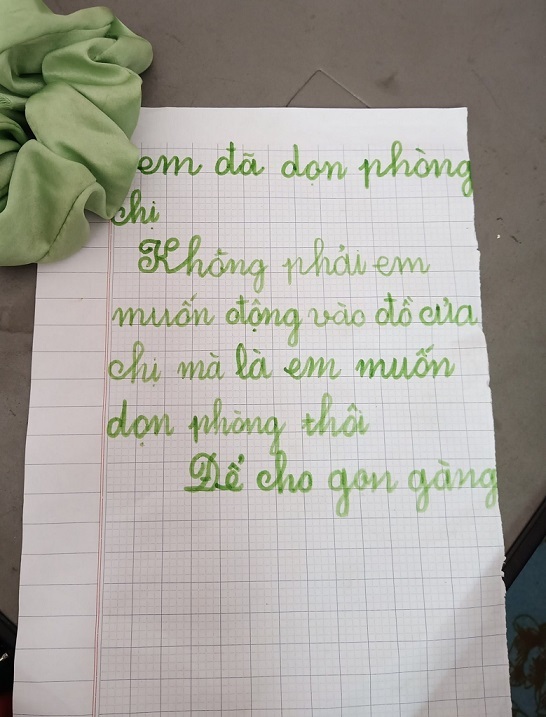 em đã dọn phòng
chị
Không phải em
muốn động vào đồ của
chị mà là em muốn
dọn phòng thôi
Để cho gọn gàng